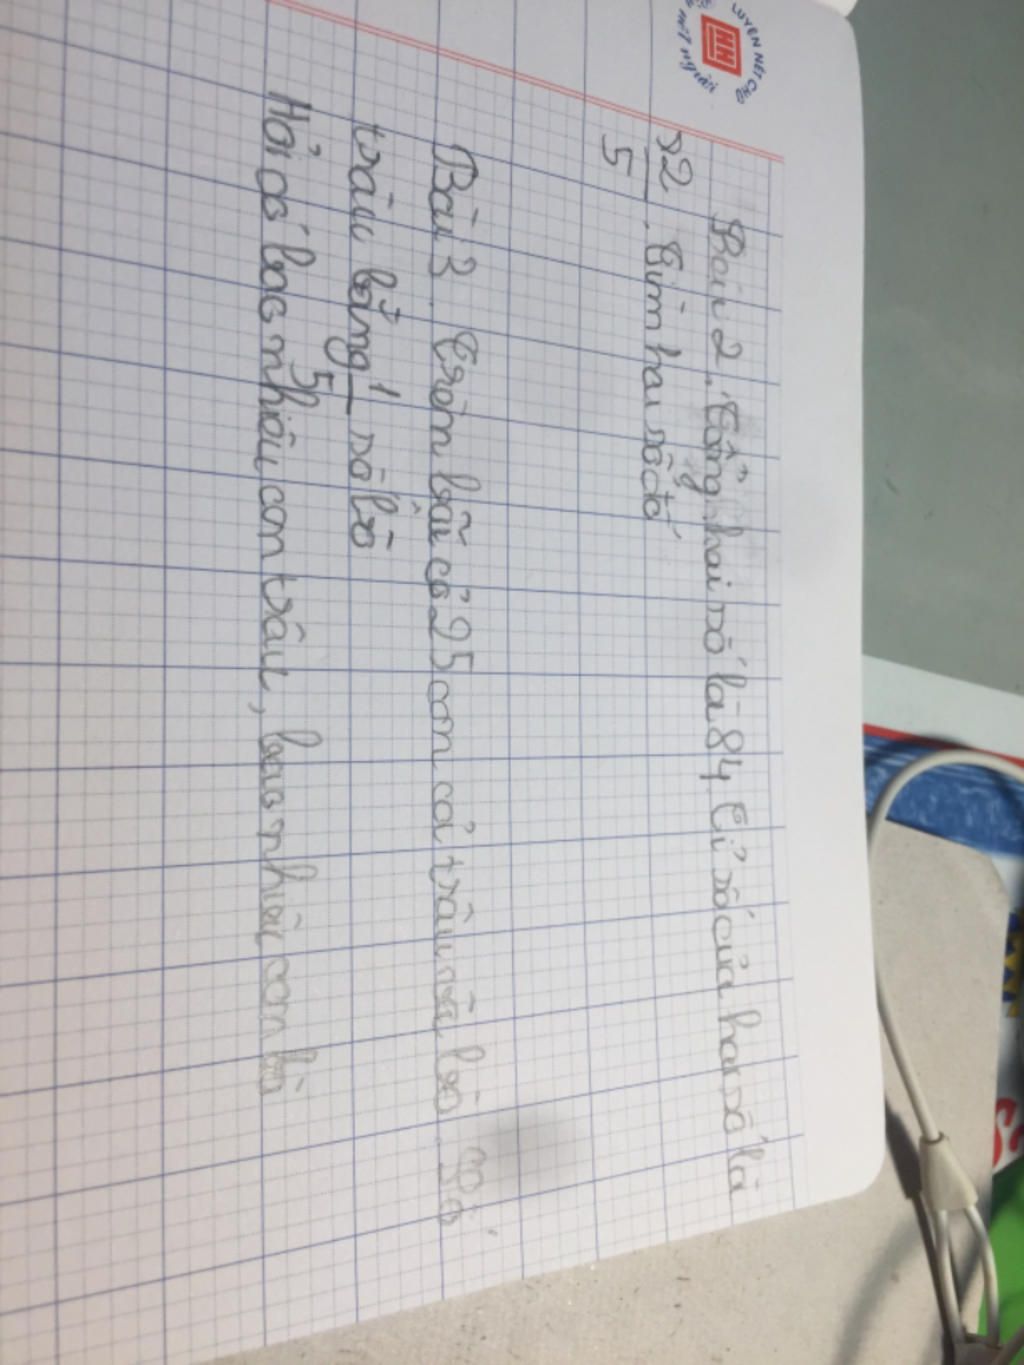 LUYỆN NÉT CHỮ
nết người
Bài 2. Tổng hai số là 84. Tỉ số của hai số là
2/5. Tìm hai số đó
Bài 3. Trên bãi có 25 con cả trâu và bò. Số
trâu bằng 1/5 số bò
Hỏi có bao nhiêu con trâu, bao nhiêu con bò